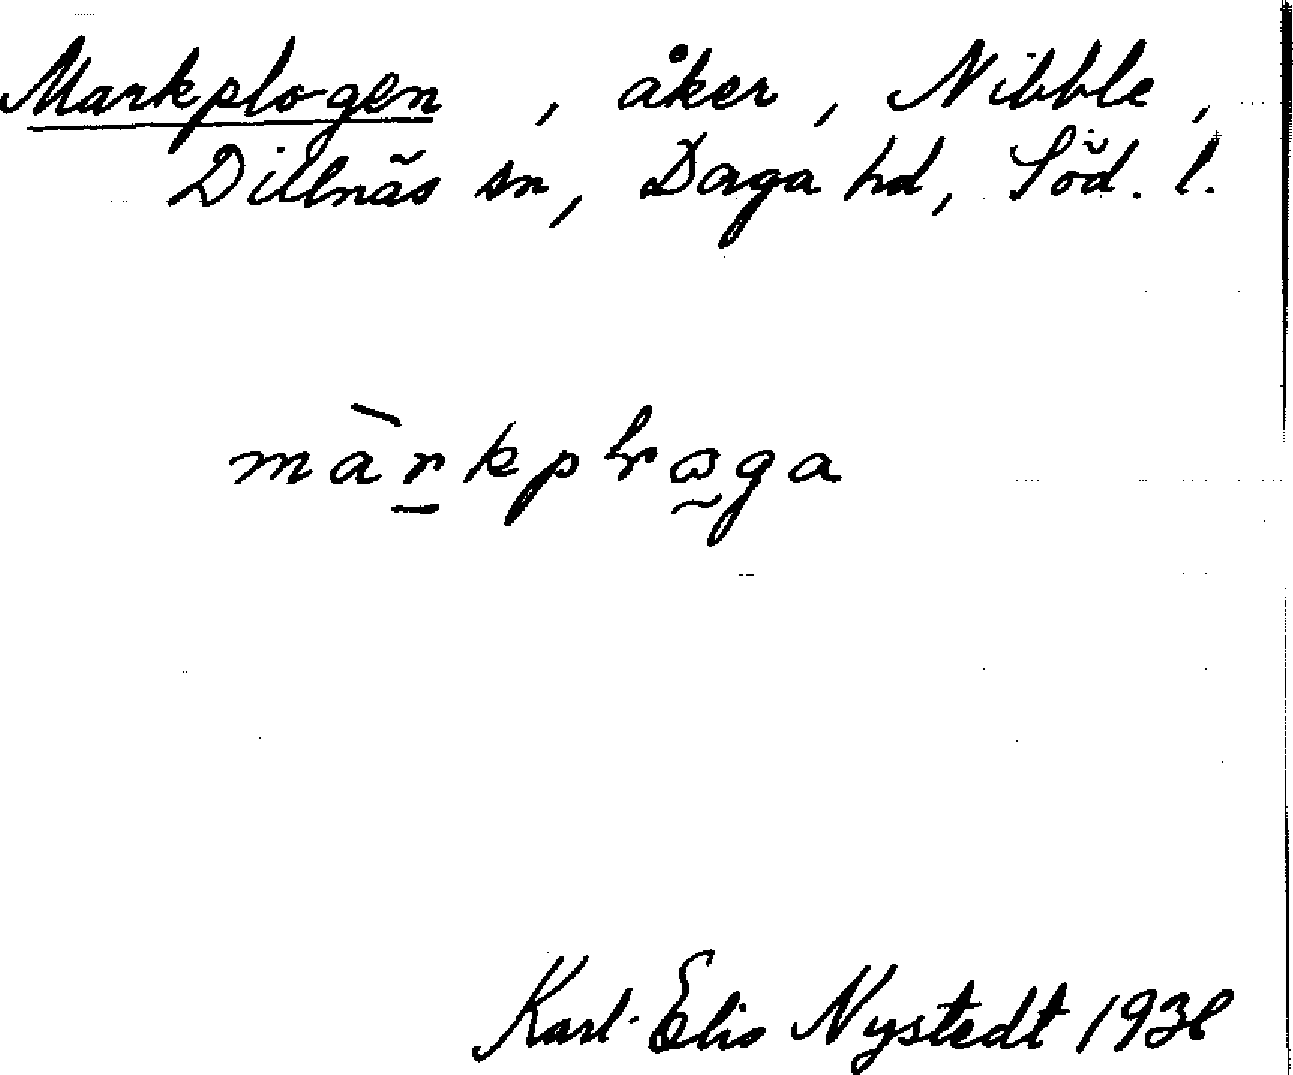 Markplogen, åker, Nibble,
Dillnäs sn, Daga hd, Söd. l.
màrkploga
Karl-Elis Nystedt 1938